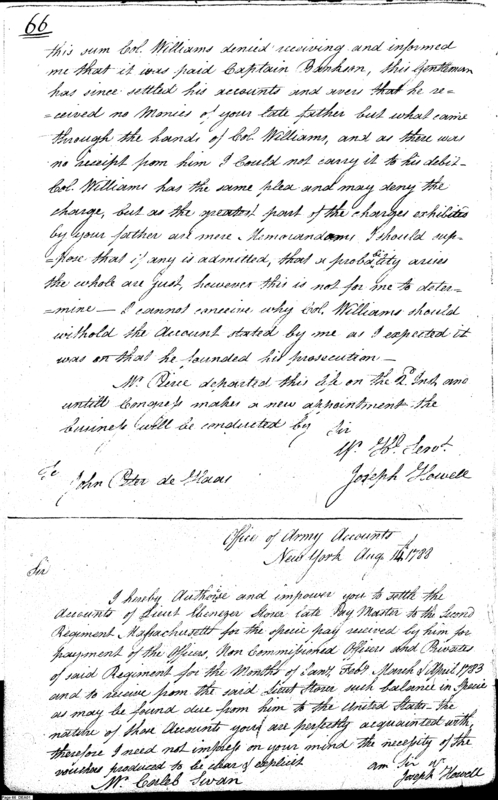 66
this sum Col. Williams denied receiving and informed
me that it was paid Captain Bankson, this Gentleman
has since settled his accounts and avers that he re=
=ceived no Monies of your late father but what came
through the hands of Col. Williams, and as there was
no receipt from him I Could not carry it to his debit
Col. Williams has the same plea and may deny the
charge, but as the greatest part of the charges exhibited
by your father are mere Memorandoms I should sup=
=pose that if any is admitted, that a probability arises
the whole are just, however this is not for me to deter=
=mine — I cannot conceive why Col. Williams should
withold the Account stated by me as I expected it
was on that he founded his prosecution —
Mr. Pierce departed this life on the 2d Inst. and
untill Congress makes a new appointment the
business will be conducted by Sir
Yr. Hb. Servt.
Joseph Howell
To John Peter de Haas
Office of Army Accounts
New York Aug 14th 1788
Sir
I hereby Authorise and impower you to settle the
Accounts of Lieut Ebenezer Storer late Pay Master to the Second
Regiment Massachusetts for the specie pay received by him for
payment of the Officers, Non Commissioned Officers and Privates
of said Regiment for the Months of Jany. Feby. March & April 1783
and to receive from the said Lieut Storer such balance in Specie
as may be found due from him to the United States. the
nature of these Accounts you are perfectly acquainted with,
therefore I need not impress on your mind the necessity of the
vouchers produced to be clear & explicit
am Sir yr.
Mr. Caleb Swan
Joseph Howell